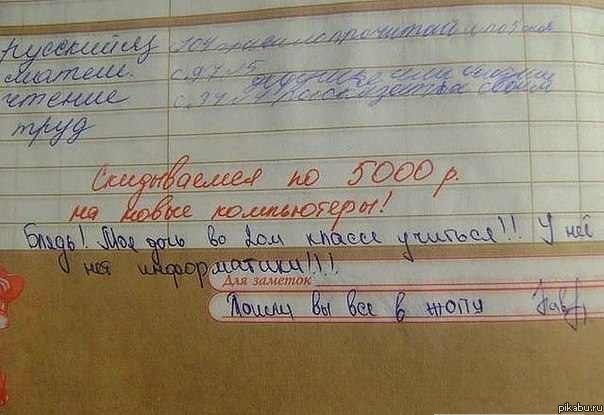 русский яз 104 правило прочитай и
матем. с. 97 15
чтение с. 34
труд
Скидываемся по 5000 р.
на новые компьютеры!
Блядь! Моя дочь во 2ом классе учиться!!! У неё
нет информатики!!!!
Для заметок
Пошли вы все в жопу
pikabu.ru